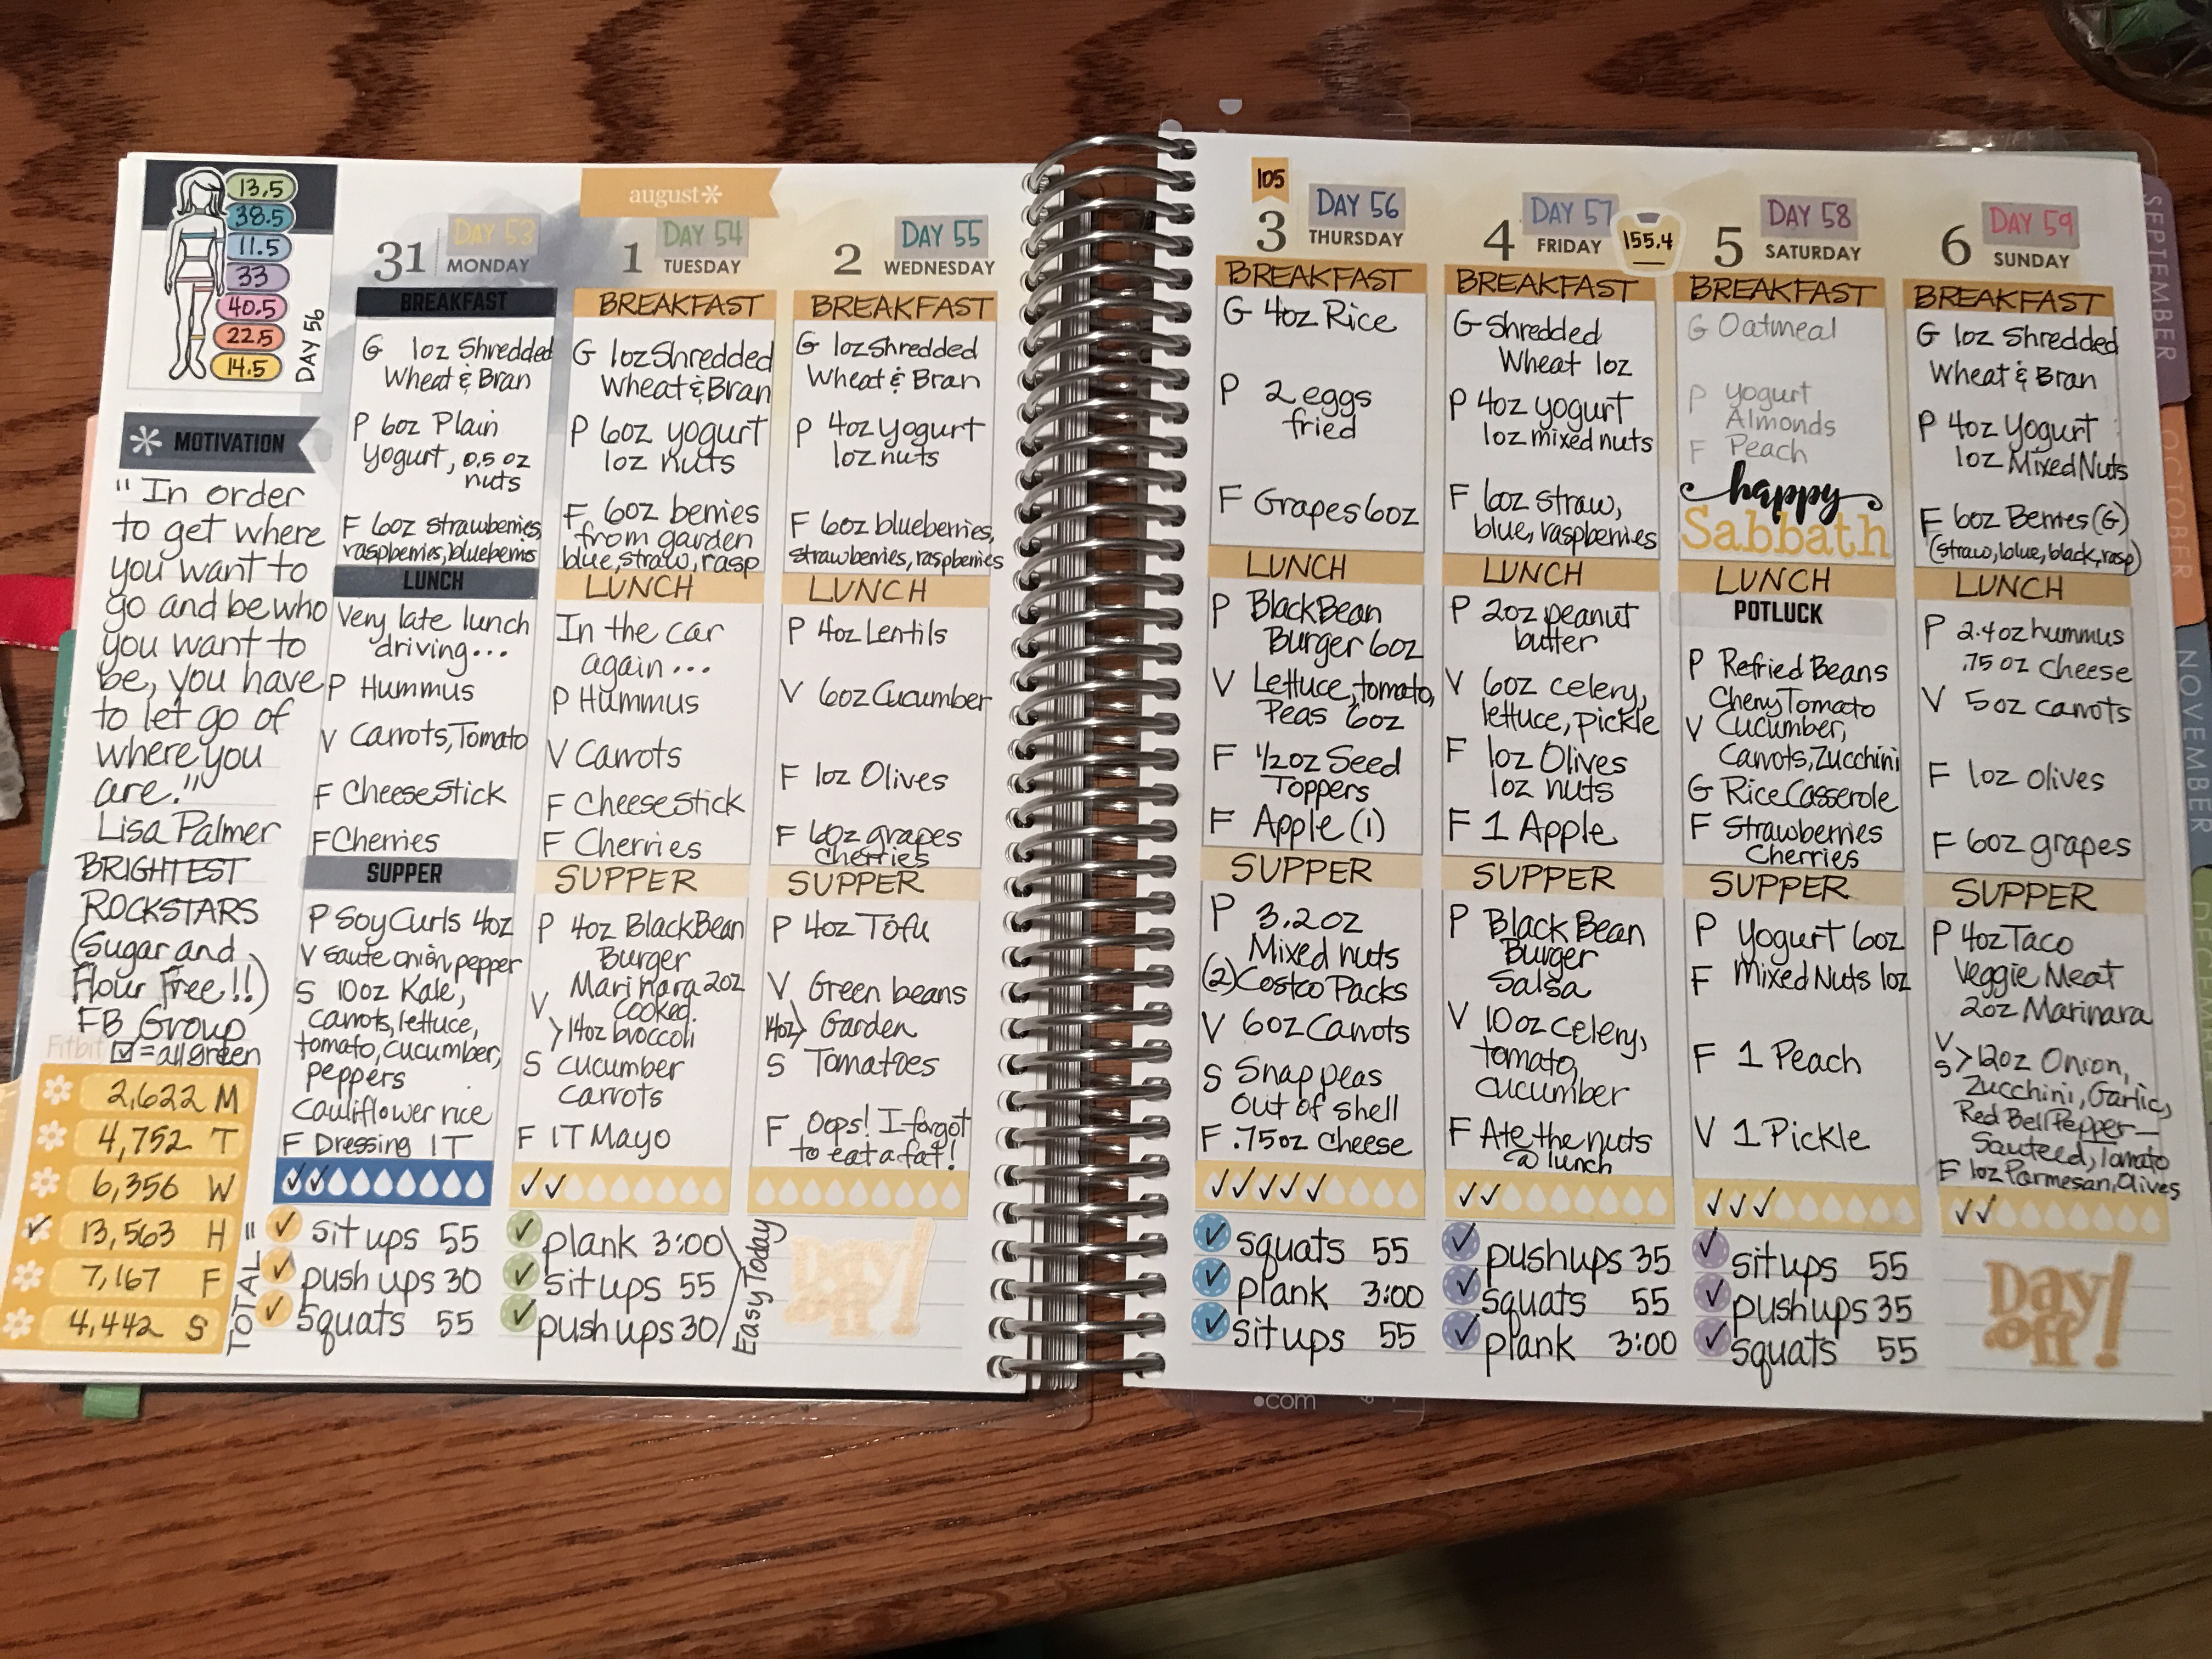 13.5
38.5
11.5
33
40.5
22.5
14.5
DAY 56
* MOTIVATION
"In order
to get where
you want to
go and be who
you want to
be, you have
to let go of
where you
are."
Lisa Palmer
BRIGHTEST
ROCKSTARS
(Sugar and
Flour Free!!)
FB Group
Fitbit ☑ = all green
2,622 M
4,752 T
6,356 W
✓ 13,563 H
7,167 F
4,442 S
TOTAL =
august*
31 DAY 53
MONDAY
BREAKFAST
G 1oz Shredded
Wheat & Bran
P 6oz Plain
Yogurt, 0.5 oz
nuts
F 6oz strawberries,
raspberries, blueberries
LUNCH
Very late lunch
driving...
P Hummus
V Carrots, Tomato
F Cheese Stick
F Cherries
SUPPER
P Soy Curls 4oz
V saute onion pepper
S 10oz Kale,
carrots, lettuce,
tomato, cucumber,
peppers
cauliflower rice
F Dressing 1T
✓✓
✓ sit ups 55
✓ push ups 30
✓ squats 55
1 DAY 54
TUESDAY
BREAKFAST
G 1oz Shredded
Wheat & Bran
P 6oz yogurt
1oz nuts
F 6oz berries
from garden
blue, straw, rasp
LUNCH
In the car
again...
P Hummus
V Carrots
F Cheese Stick
F Cherries
SUPPER
P 4oz Black Bean
Burger
Marinara 2oz
V Cooked
>14oz broccoli
S cucumber
carrots
F 1T Mayo
✓✓
✓ plank 3:00
✓ sit ups 55
✓ push ups 30
Easy Today
2 DAY 55
WEDNESDAY
BREAKFAST
G 1oz Shredded
Wheat & Bran
P 4oz yogurt
1oz nuts
F 6oz blueberries,
strawberries, raspberries
LUNCH
P 4oz Lentils
V 6oz Cucumber
F 1oz Olives
F 6oz grapes
cherries
SUPPER
P 4oz Tofu
V Green beans
14oz> Garden
S Tomatoes
F Oops! I forgot
to eat a fat!
Day off!
105
3 DAY 56
THURSDAY
BREAKFAST
G 4oz Rice
P 2 eggs
fried
F Grapes 6oz
LUNCH
P Black Bean
Burger 6oz
V Lettuce, tomato,
Peas 6oz
F ½oz Seed
Toppers
F Apple (1)
SUPPER
P 3.2oz
Mixed nuts
(2) Costco Packs
V 6oz Carrots
S Snap peas
out of shell
F .75oz cheese
✓✓✓✓✓
✓ squats 55
✓ plank 3:00
✓ sit ups 55
4 DAY 57
FRIDAY
155.4
BREAKFAST
G Shredded
Wheat 1oz
P 4oz yogurt
1oz mixed nuts
F 6oz straw,
blue, raspberries
LUNCH
P 2oz peanut
butter
V 6oz celery,
lettuce, pickle
F 1oz Olives
1oz nuts
F 1 Apple
SUPPER
P Black Bean
Burger
Salsa
V 10oz celery,
tomato,
cucumber
F Ate the nuts
@ lunch
✓✓
✓ pushups 35
✓ squats 55
✓ plank 3:00
5 DAY 58
SATURDAY
BREAKFAST
G Oatmeal
P Yogurt
Almonds
F Peach
happy
Sabbath
LUNCH
POTLUCK
P Refried Beans
Cherry Tomato
V Cucumber,
Carrots, Zucchini
G Rice Casserole
F Strawberries
Cherries
SUPPER
P Yogurt 6oz
F Mixed Nuts 1oz
F 1 Peach
V 1 Pickle
✓✓✓
✓ sit ups 55
✓ pushups 35
✓ squats 55
6 DAY 59
SUNDAY
BREAKFAST
G 1oz Shredded
Wheat & Bran
P 4oz Yogurt
1oz Mixed Nuts
F 6oz Berries (G)
(straw, blue, black, rasp)
LUNCH
P 2.4oz hummus
.75 oz cheese
V 5oz carrots
F 1oz olives
F 6oz grapes
SUPPER
P 4oz Taco
Veggie Meat
2oz Marinara
V
S >12oz Onion,
Zucchini, Garlic,
Red Bell Pepper—
Sauteed, Tomato
F 1oz Parmesan, Olives
✓✓
Day off!
SEPTEMBER
OCTOBER
NOVEMBER
DECEMBER
.com